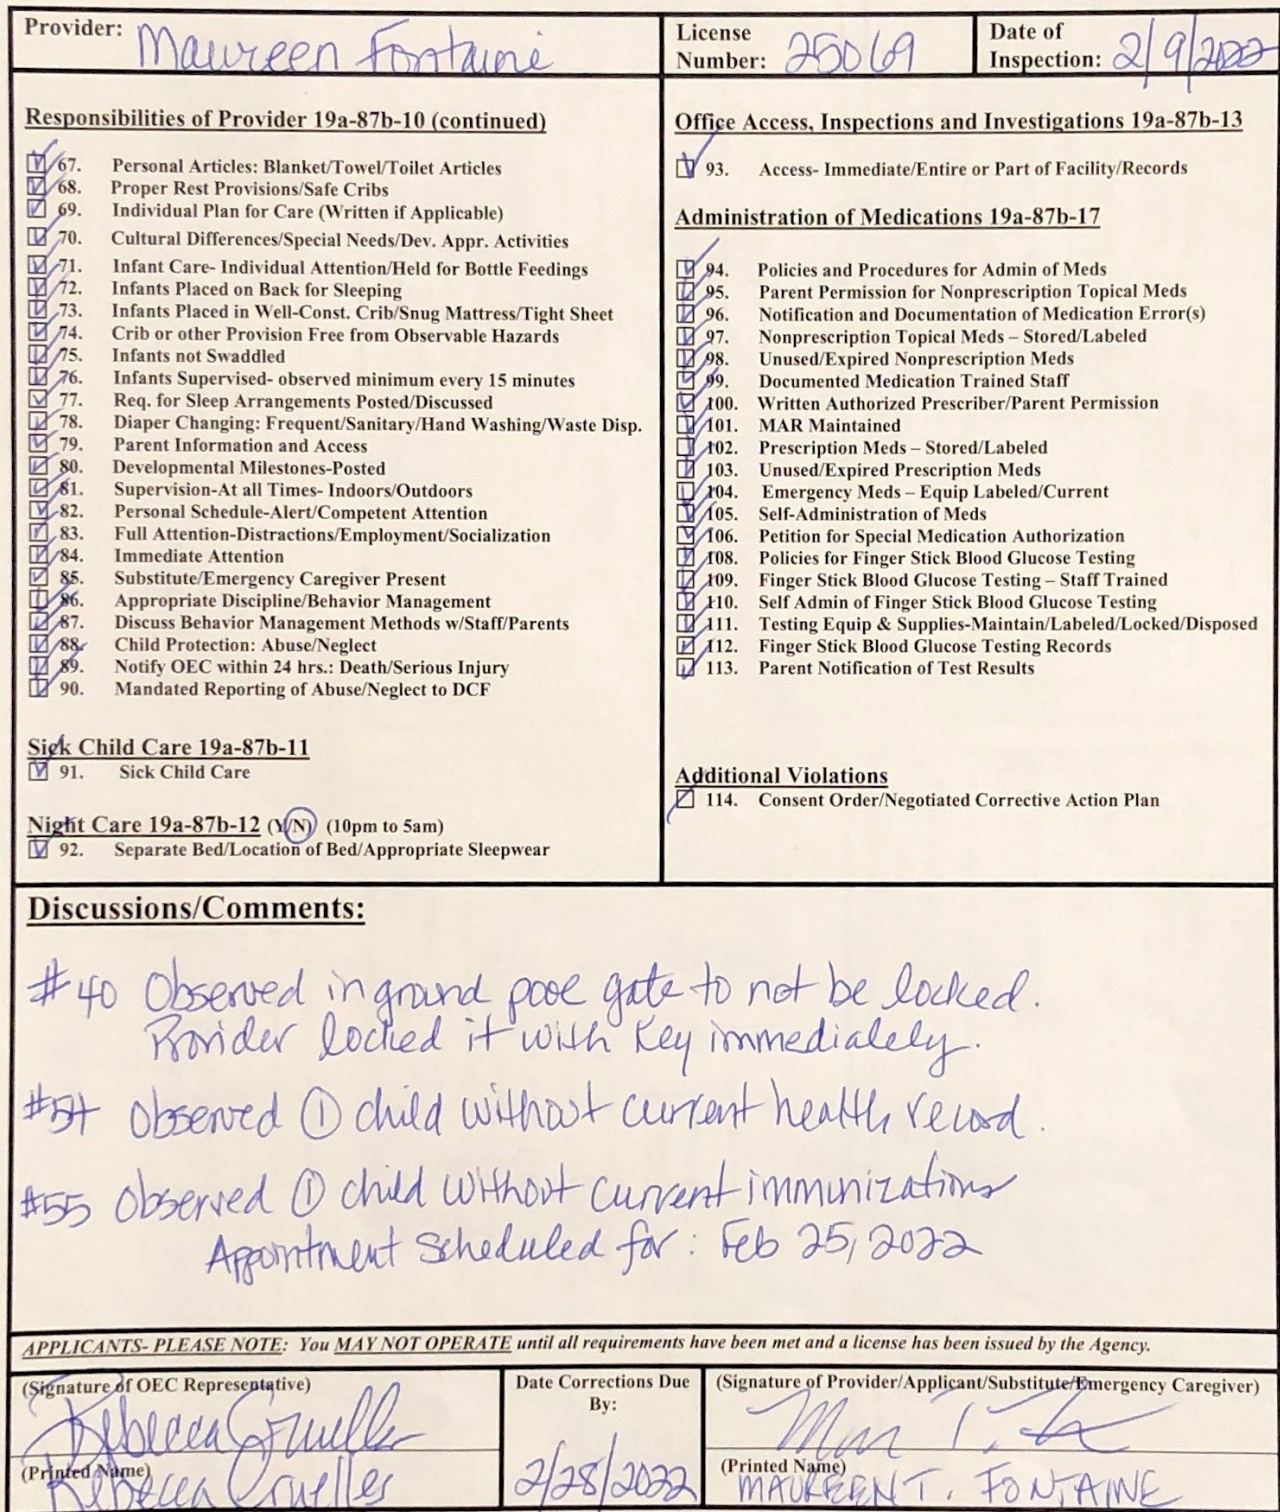 Provider: Maureen Fontaine
License Number: 25069
Date of Inspection: 2/9/2022
Responsibilities of Provider 19a-87b-10 (continued)
67. Personal Articles: Blanket/Towel/Toilet Articles
68. Proper Rest Provisions/Safe Cribs
69. Individual Plan for Care (Written if Applicable)
70. Cultural Differences/Special Needs/Dev. Appr. Activities
71. Infant Care- Individual Attention/Held for Bottle Feedings
72. Infants Placed on Back for Sleeping
73. Infants Placed in Well-Const. Crib/Snug Mattress/Tight Sheet
74. Crib or other Provision Free from Observable Hazards
75. Infants not Swaddled
76. Infants Supervised- observed minimum every 15 minutes
77. Req. for Sleep Arrangements Posted/Discussed
78. Diaper Changing: Frequent/Sanitary/Hand Washing/Waste Disp.
79. Parent Information and Access
80. Developmental Milestones-Posted
81. Supervision-At all Times- Indoors/Outdoors
82. Personal Schedule-Alert/Competent Attention
83. Full Attention-Distractions/Employment/Socialization
84. Immediate Attention
85. Substitute/Emergency Caregiver Present
86. Appropriate Discipline/Behavior Management
87. Discuss Behavior Management Methods w/Staff/Parents
88. Child Protection: Abuse/Neglect
89. Notify OEC within 24 hrs.: Death/Serious Injury
90. Mandated Reporting of Abuse/Neglect to DCF
Sick Child Care 19a-87b-11
91. Sick Child Care
Night Care 19a-87b-12 (Y/N) (10pm to 5am)
92. Separate Bed/Location of Bed/Appropriate Sleepwear
Office Access, Inspections and Investigations 19a-87b-13
93. Access- Immediate/Entire or Part of Facility/Records
Administration of Medications 19a-87b-17
94. Policies and Procedures for Admin of Meds
95. Parent Permission for Nonprescription Topical Meds
96. Notification and Documentation of Medication Error(s)
97. Nonprescription Topical Meds – Stored/Labeled
98. Unused/Expired Nonprescription Meds
99. Documented Medication Trained Staff
100. Written Authorized Prescriber/Parent Permission
101. MAR Maintained
102. Prescription Meds – Stored/Labeled
103. Unused/Expired Prescription Meds
104. Emergency Meds – Equip Labeled/Current
105. Self-Administration of Meds
106. Petition for Special Medication Authorization
108. Policies for Finger Stick Blood Glucose Testing
109. Finger Stick Blood Glucose Testing – Staff Trained
110. Self Admin of Finger Stick Blood Glucose Testing
111. Testing Equip & Supplies-Maintain/Labeled/Locked/Disposed
112. Finger Stick Blood Glucose Testing Records
113. Parent Notification of Test Results
Additional Violations
114. Consent Order/Negotiated Corrective Action Plan
Discussions/Comments:
#40 Observed inground pool gate to not be locked.
Provider locked it with key immediately.
#54 Observed ① child without current health record.
#55 Observed ① child without current immunizations
Appointment scheduled for: Feb 25, 2022
APPLICANTS- PLEASE NOTE: You MAY NOT OPERATE until all requirements have been met and a license has been issued by the Agency.
(Signature of OEC Representative)
Rebecca Cruelles
(Printed Name)
Rebecca Cruelles
Date Corrections Due
By:
2/28/2022
(Signature of Provider/Applicant/Substitute/Emergency Caregiver)
(Printed Name)
MAUREEN T. FONTAINE